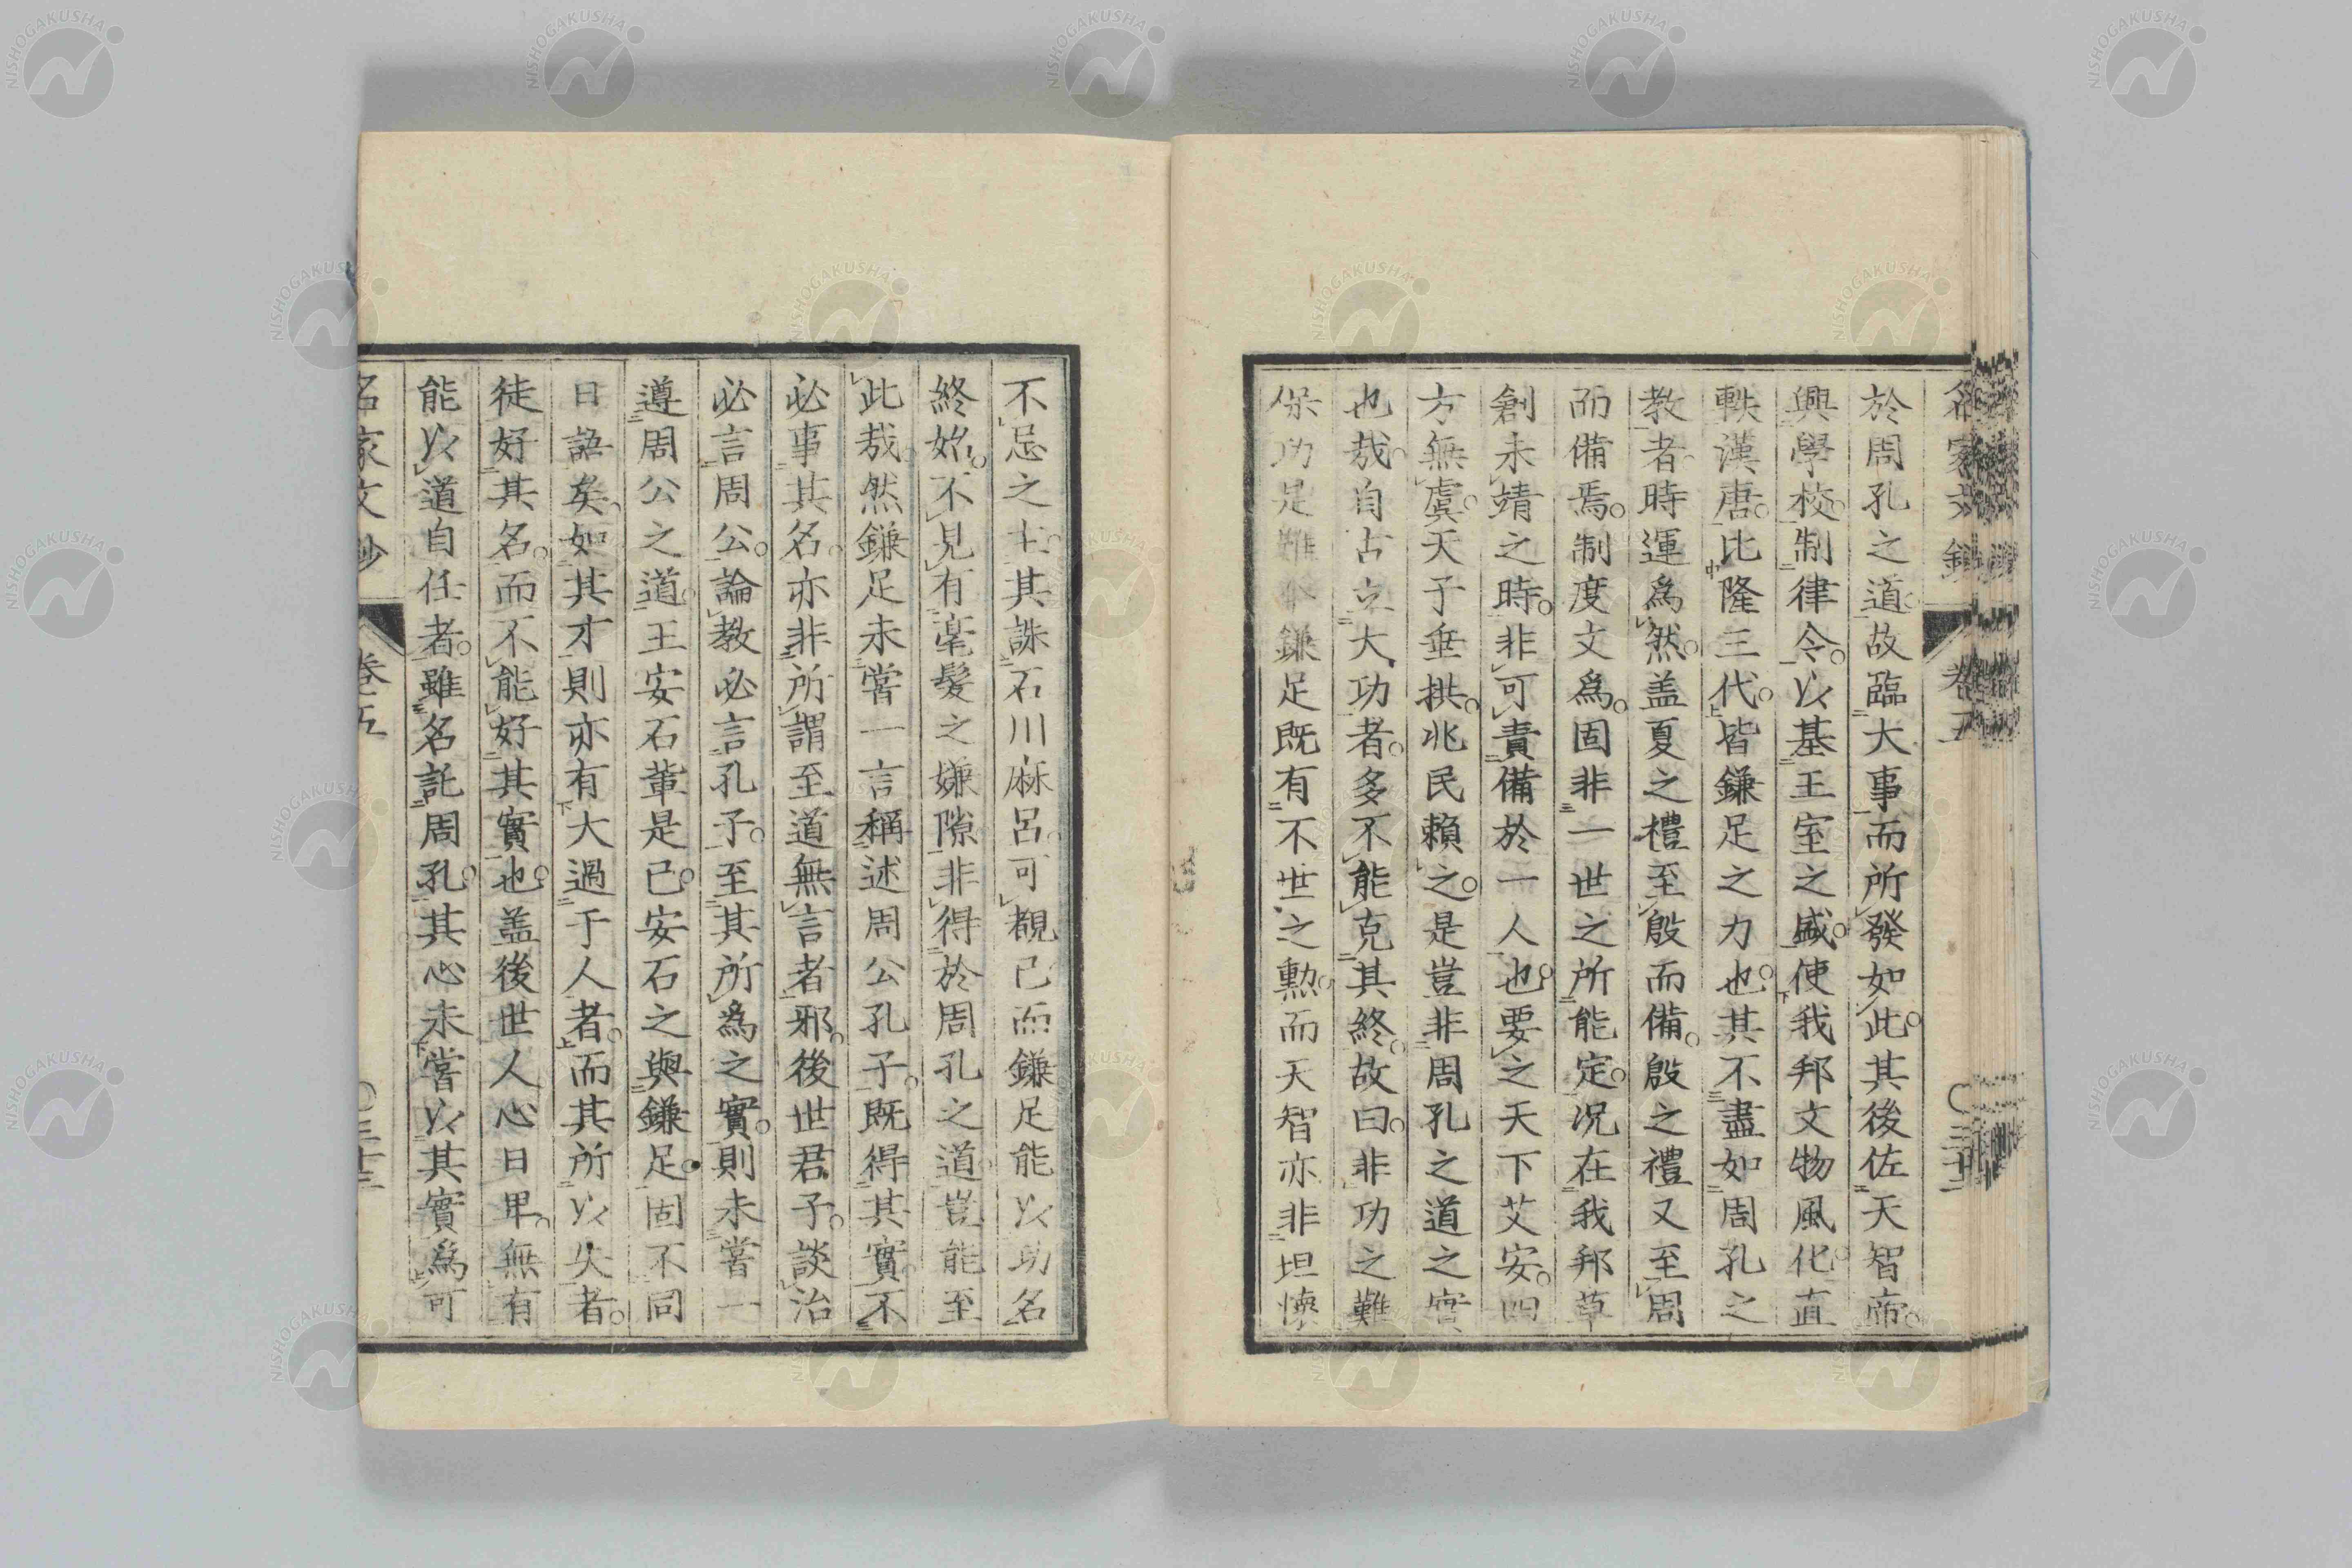 名家文鈔 卷五
於周孔之道故臨大事而所發如此其後佐天智帝
興學校制律令以基王室之盛使我邦文物風化直
軼漢唐比隆三代皆鎌足之力也其不盡如周孔之
教者時運爲然盖夏之禮至殷而備殷之禮又至周
而備焉制度文爲固非一世之所能定况在我邦草
創未靖之時非可責備於一人也要之天下艾安四
方無虞天子垂拱兆民賴之是豈非周孔之道之實
也哉自古立大功者多不能克其終故曰非功之難
保功是難 鎌足既有不世之勲而天智亦非坦懷
不忌之主其誅石川麻呂可覩已而鎌足能以功名
終始不見有毫髮之嫌隙非得於周孔之道豈能至
此哉然鎌足未嘗一言稱述周公孔子既得其實不
必事其名亦非所謂至道無言者邪後世君子談治
必言周公論教必言孔子至其所爲之實則未嘗一
遵周公之道王安石輩是已安石之與鎌足固不同
日語矣如其才則亦有大過于人者而其所以失者
徒好其名而不能好其實也盖後世人心日卑無有
能以道自任者雖名託周孔其心未嘗以其實爲可
名家文鈔 卷五
NISHOGAKUSHA